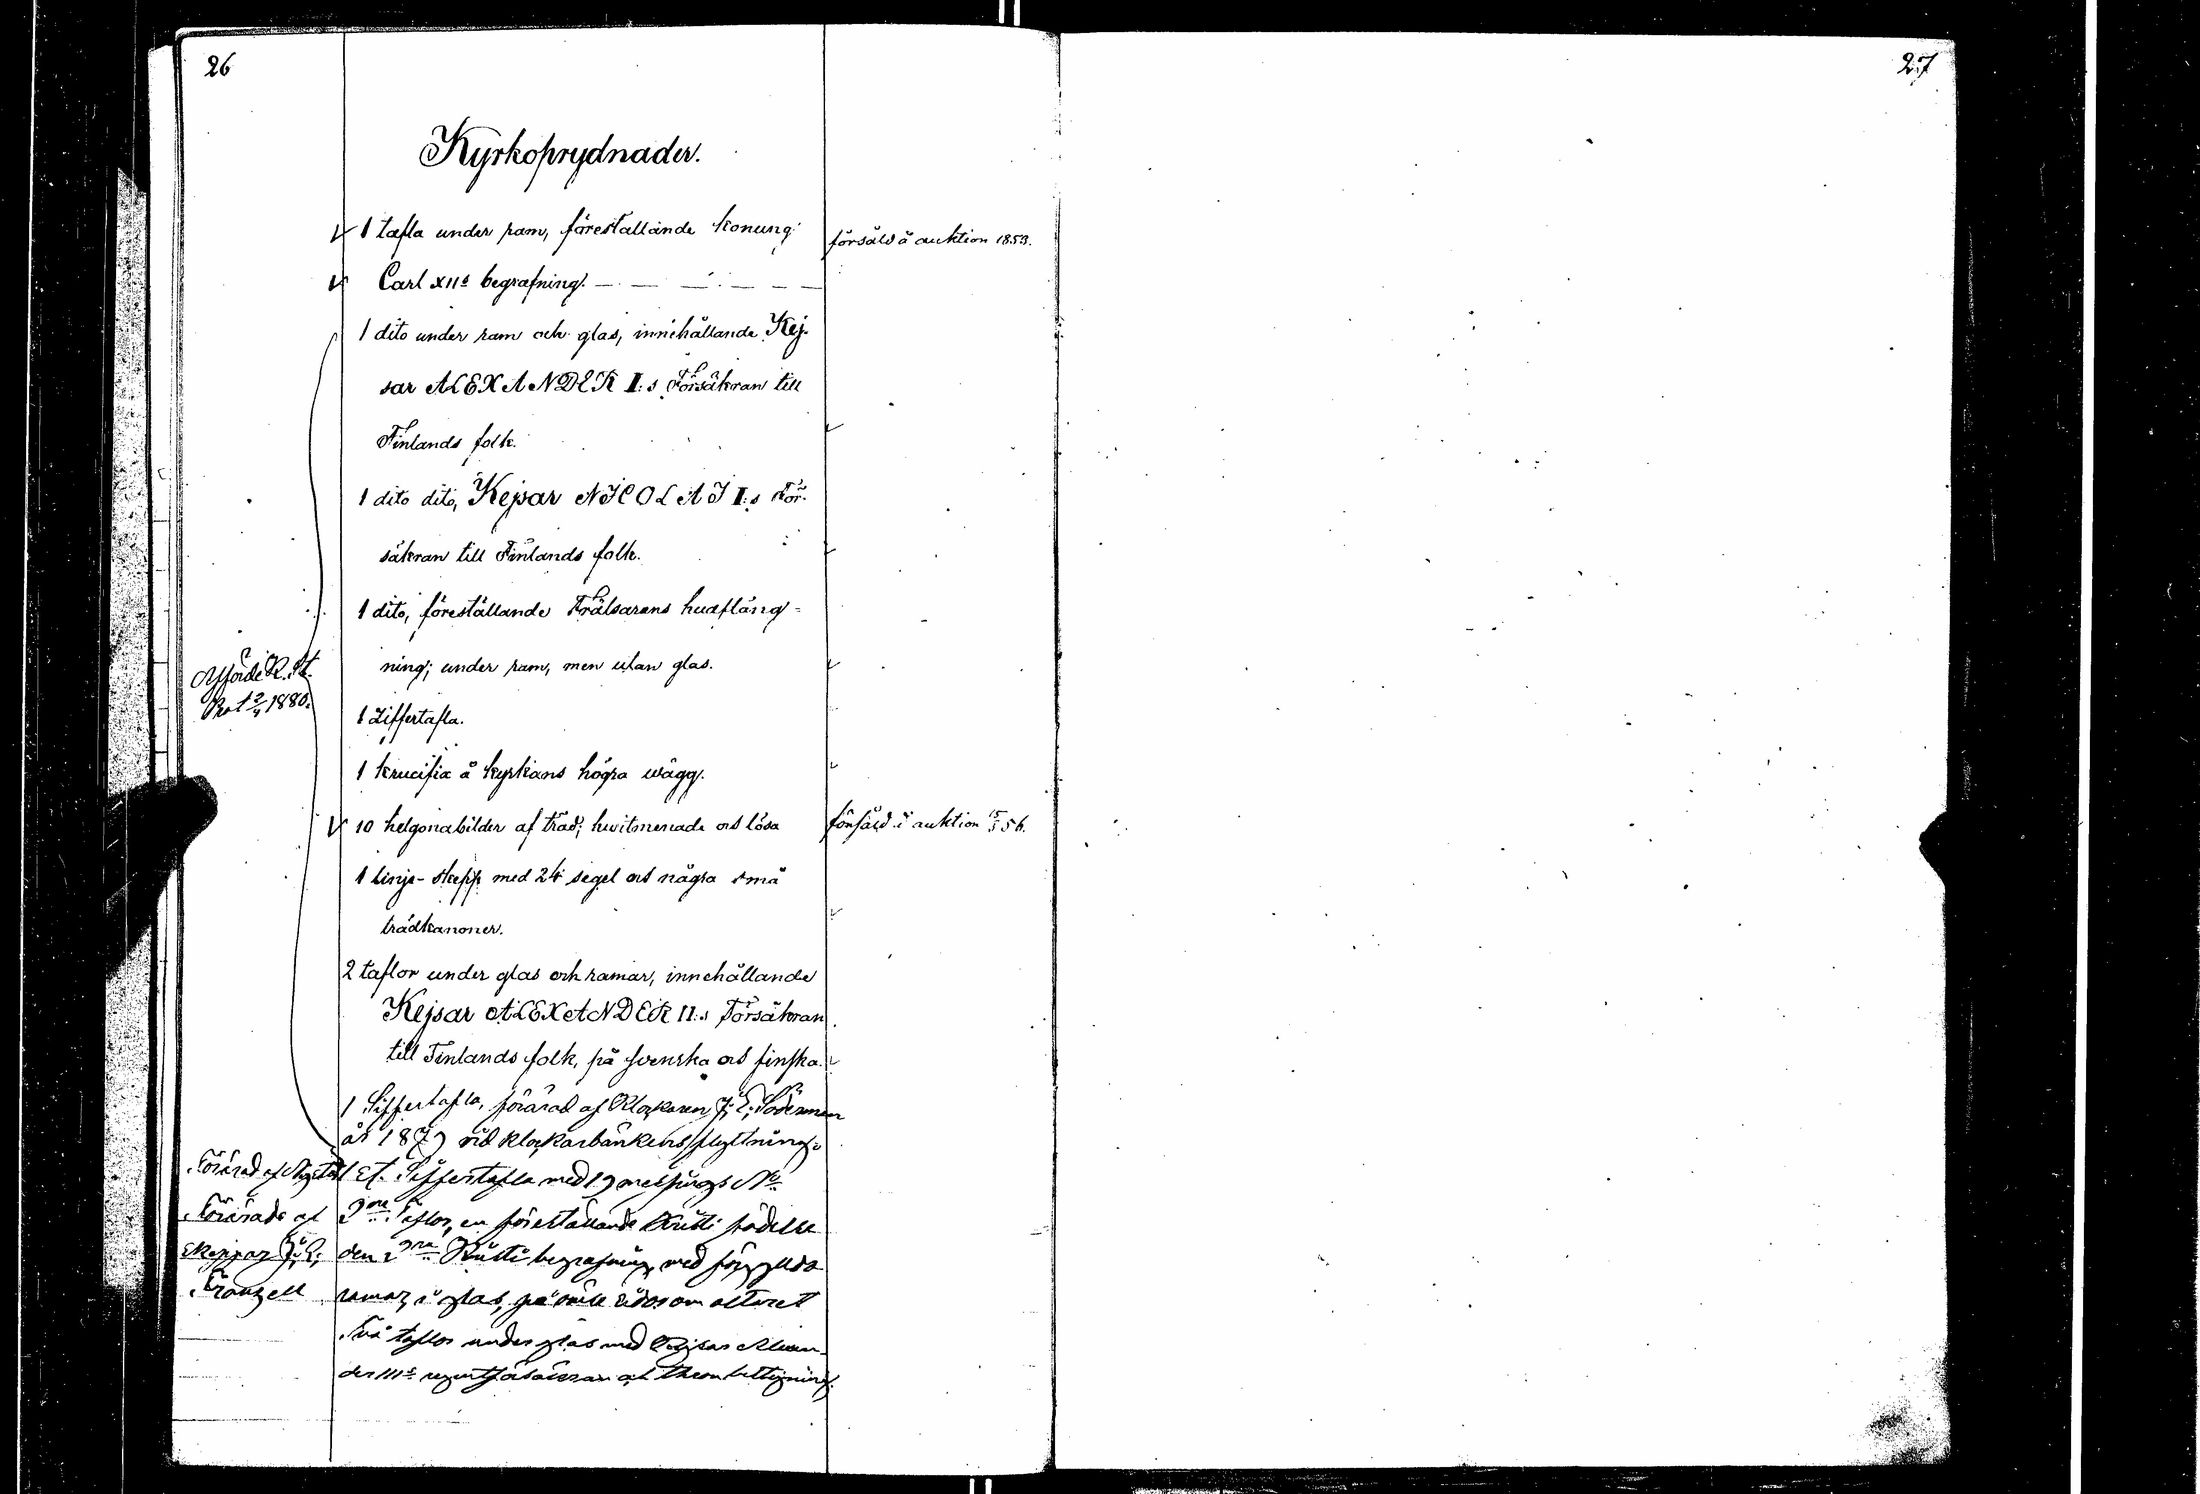 26
27
Kyrkoprydnader.
1 tafla under ram, föreställande konung
försåld å auktion 1853.
Carl XIIs begrafning.
1 dito under ram och glas, innehållande Kej-
sar ALEXANDER I:s Försäkran till
Finlands folk.
1 dito dito, Kejsar NICOLAI I:s För-
säkran till Finlands folk.
1 dito, föreställande Frälsarens hudfläng-
ning; under ram, men utan glas.
Afförde
1880.
1 Ziffertafla.
1 krucifix å kyrkans högra wägg.
10 helgonabilder af träd; hwitmenade och lösa
försåld å auktion 56.
1 linje-skepp med 24 segel och några små
trädkanoner.
2 taflor under glas och ramar, innehållande
Kejsar ALEXANDER II:s Försäkran
till Finlands folk, på svenska och finska.
1 Siffertafla, förärad af Klockaren J. E. Söderman
år 1879 vid klockarbänkens flyttning.
Förärad af
1 St. Siffertafla med 19 messings No
Förärade af
2ne Taflor, en föreställande Kristi födelse
Skeppar J. E.
den 2dra Kristi begrafning, med förgyllda
Franzell
ramar, i glas, på ömse sidor om altaret
Två taflor under glas med Kejsar Alexan-
der IIIs regentförsäkran